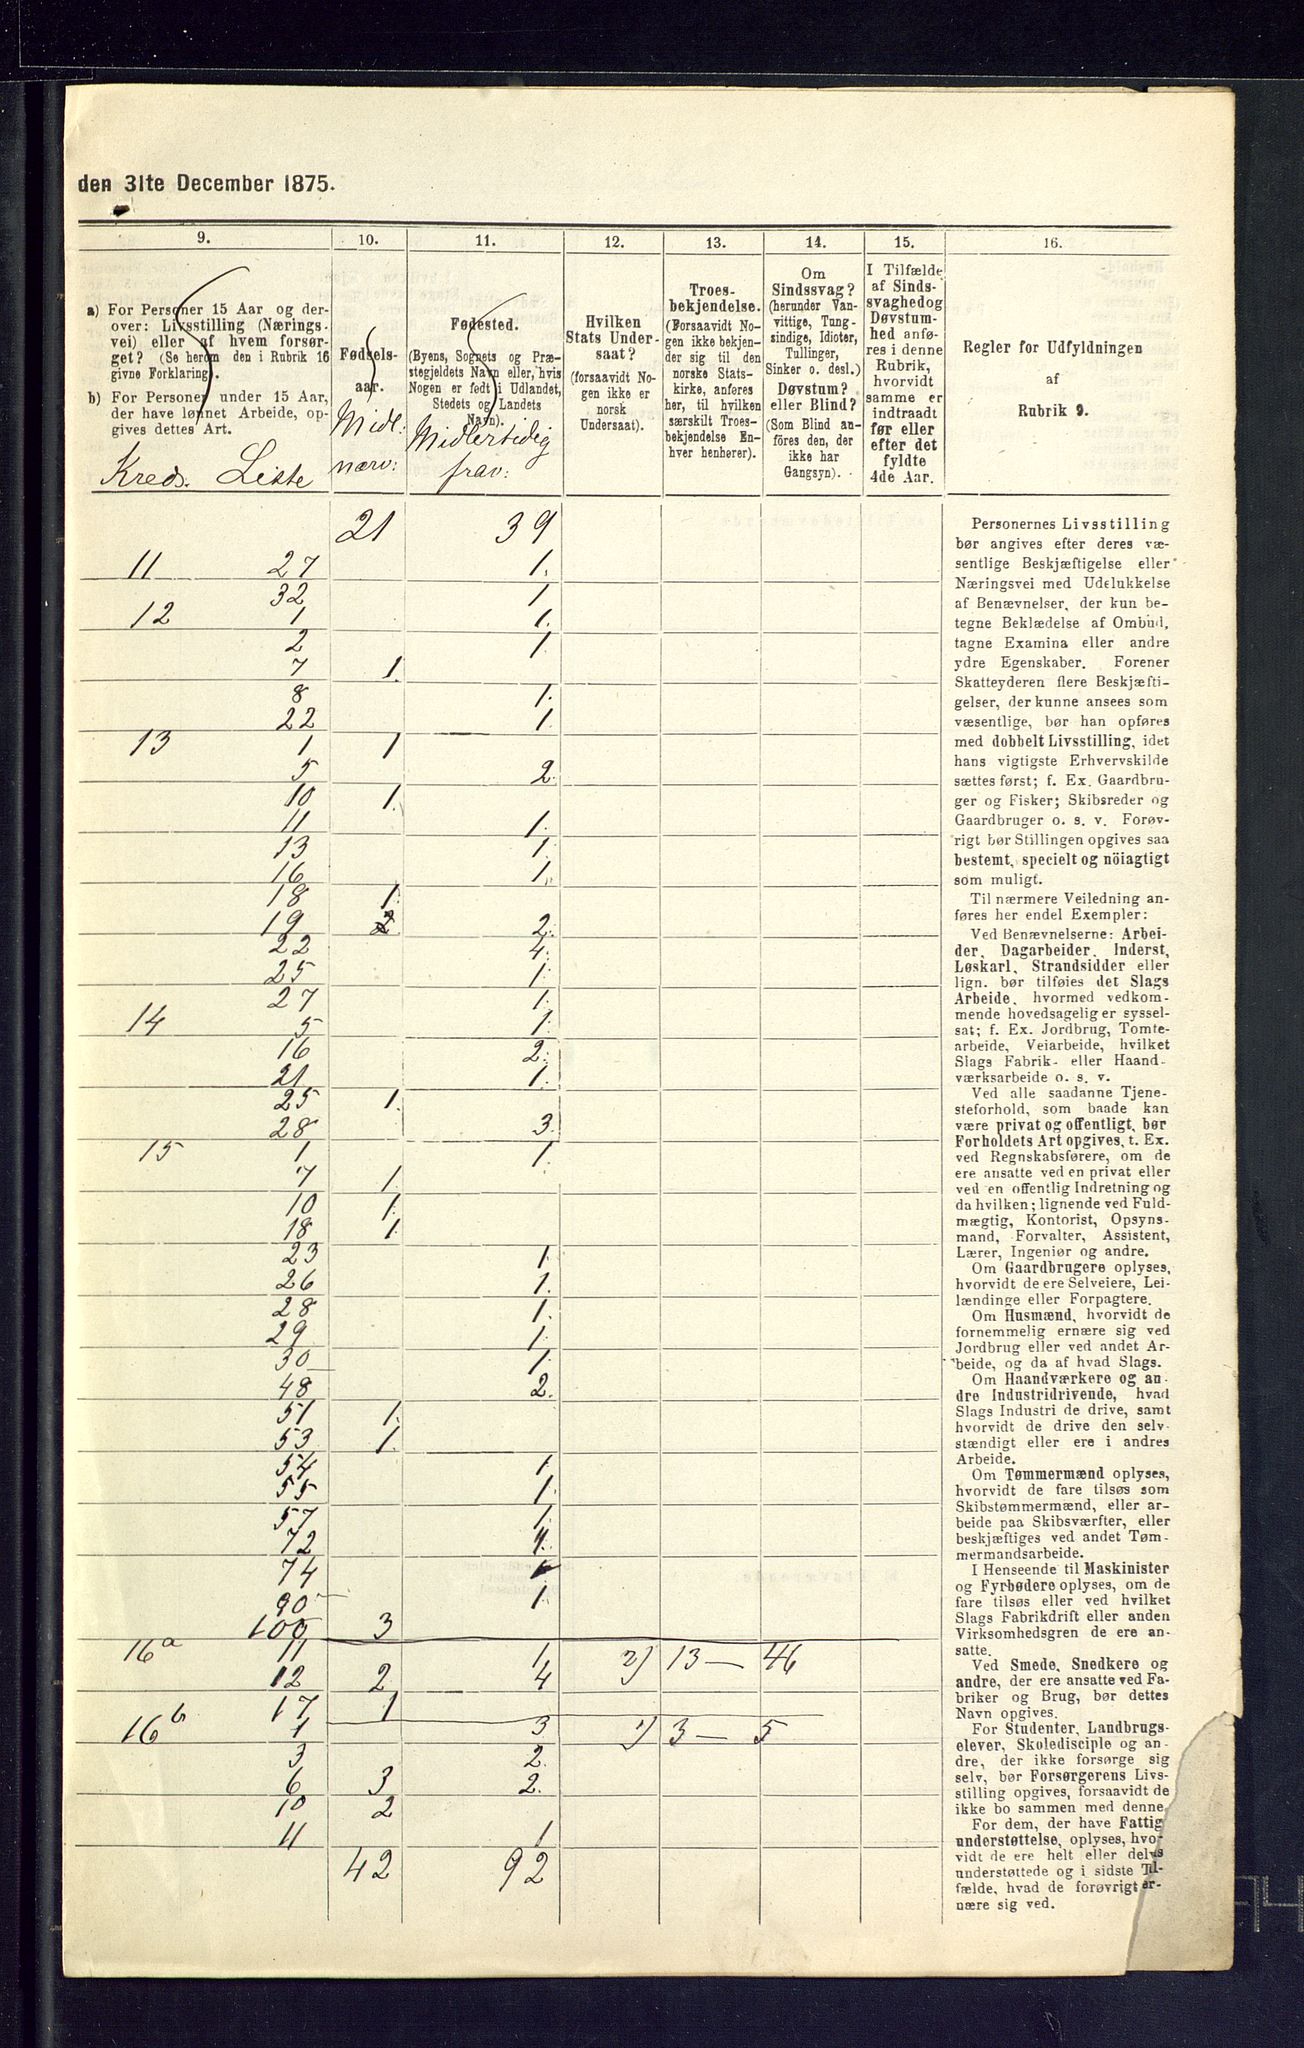 den 31te December 1875.
9. 10. 11. 12. 13. 14. 15. 16.
a) For Personer 15 Aar og der-
over: Livsstilling (Nærings-
vei) eller af hvem forsør-
get? (Se herom den i Rubrik 16
givne Forklaring).
b) For Personer under 15 Aar,
der have lønnet Arbeide, op-
gives dettes Art.
Kreds. Liste
Fødsels-
aar.
Midl:
nærv:
Fødested.
(Byens, Sognets og Præ-
stegjeldets Navn eller, hvis
Nogen er født i Udlandet,
Stedets og Landets
Navn).
Midlertidig
frav:
Hvilken
Stats Under-
saat?
(forsaavidt No-
gen ikke er
norsk
Undersaat).
Troes-
bekjendelse.
(Forsaavidt No-
gen ikke bekjen-
der sig til den
norske Stats-
kirke, anføres
her, til hvilken
særskilt Troes-
bekjendelse En-
hver henhører).
Om
Sindssvag?
(herunder Van-
vittige, Tung-
sindige, Idioter,
Tullinger,
Sinker o. desl.)
Døvstum?
eller Blind?
(Som Blind an-
föres den, der
ikke har
Gangsyn).
I Tilfælde
af Sinds-
svaghed og
Døvstum-
hed anfø-
res i denne
Rubrik,
hvorvidt
samme er
indtraadt
før eller
efter det
fyldte
4de Aar.
Regler for Udfyldningen
af
Rubrik 9.
21 39
11 27 1.
32 1
12 1 1.
2 1
7 1.
8 1.
22 1.
13 1 1
5 2.
10 1.
11 1.
13 1.
16 1.
18 1.
19 2 2.
22 4.
25 1.
27 1.
14 5 1.
16 2.
21 1.
25 1.
28 3.
15 1 1.
7 1.
10 1.
18 1.
23 1.
26 1.
28 1.
29 1.
30 1.
48 2.
51 1.
53 1.
54 1.
55 1.
57 1.
72 1.
74 1
90 1.
100 3
16a 11 1 2) 13 — 46
12 2 4
17 1
16b 1 3 1) 3 — 5
3 2.
6 3 2.
10 2
11 1
42 92
Personernes Livsstilling
bør angives efter deres væ-
sentlige Beskjæftigelse eller
Næringsvei med Udelukkelse
af Benævnelser, der kun be-
tegne Beklædelse af Ombud,
tagne Examina eller andre
ydre Egenskaber. Forener
Skatteyderen flere Beskjæfti-
gelser, der kunne ansees som
væsentlige, bør han opføres
med dobbelt Livsstilling, idet
hans vigtigste Erhvervskilde
sættes først; f. Ex. Gaardbru-
ger og Fisker; Skibsreder og
Gaardbruger o. s. v. Forøv-
rigt bør Stillingen opgives saa
bestemt, specielt og nöiagtigt
som muligt.
Til nærmere Veiledning an-
føres her endel Exempler:
Ved Benævnelserne: Arbei-
der, Dagarbeider, Inderst,
Løskarl, Strandsidder eller
lign. bør tilføies det Slags
Arbeide, hvormed vedkom-
mende hovedsagelig er syssel-
sat; f. Ex. Jordbrug, Tomte-
arbeide, Veiarbeide, hvilket
Slags Fabrik- eller Haand-
værksarbeide o. s. v.
Ved alle saadanne Tjene-
steforhold, som baade kan
være privat og offentligt, bør
Forholdets Art opgives, t. Ex.
ved Regnskabsførere, om de
ere ansatte ved en privat eller
ved en offentlig Indretning og
da hvilken; lignende ved Fuld-
mægtig, Kontorist, Opsyns-
mand, Forvalter, Assistent,
Lærer, Ingeniør og andre.
Om Gaardbrugere oplyses,
hvorvidt de ere Selveiere, Lei-
lændinge eller Forpagtere.
Om Husmænd, hvorvidt de
fornemmelig ernære sig ved
Jordbrug eller ved andet Ar-
beide, og da af hvad Slags.
Om Haandværkere og an-
dre Industridrivende, hvad
Slags Industri de drive, samt
hvorvidt de drive den selv-
stændigt eller ere i andres
Arbeide.
Om Tømmermænd oplyses,
hvorvidt de fare tilsøs som
Skibstømmermænd, eller ar-
beide paa Skibsværfter, eller
beskjæftiges ved andet Tøm-
mermandsarbeide.
I Henseende til Maskinister
og Fyrbødere oplyses, om de
fare tilsøs eller ved hvilket
Slags Fabrikdrift eller anden
Virksomhedsgren de ere an-
satte.
Ved Smede, Snedkere og
andre, der ere ansatte ved Fa-
briker og Brug, bør dettes
Navn opgives.
For Studenter, Landbrugs-
elever, Skoledisciple og an-
dre, der ikke forsørge sig
selv, bør Forsørgerens Livs-
stilling opgives, forsaavidt de
ikke bo sammen med denne.
For dem, der have Fattig-
understøttelse, oplyses, hvor-
vidt de ere helt eller delvis
understøttede og i sidste Til-
fælde, hvad de forøvrigt er-
nære sig ved.